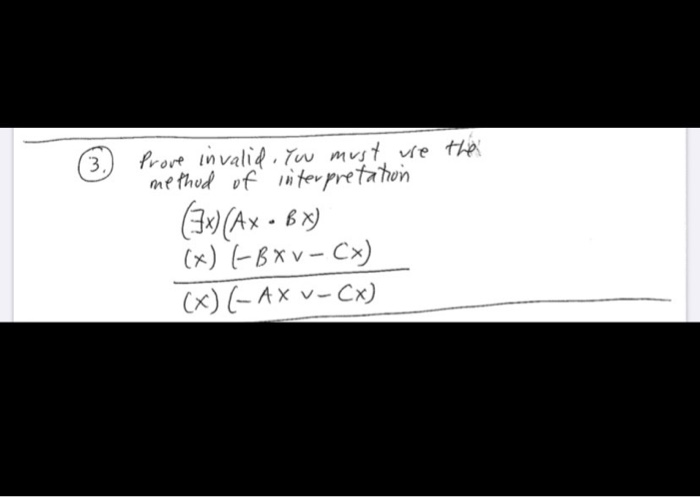 3. Prove invalid. You must use the
method of interpretation
(∃x)(Ax • Bx)
(x) (-Bx v - Cx)
(x) (- Ax v - Cx)